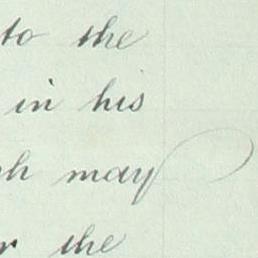 to the
in his
may
the